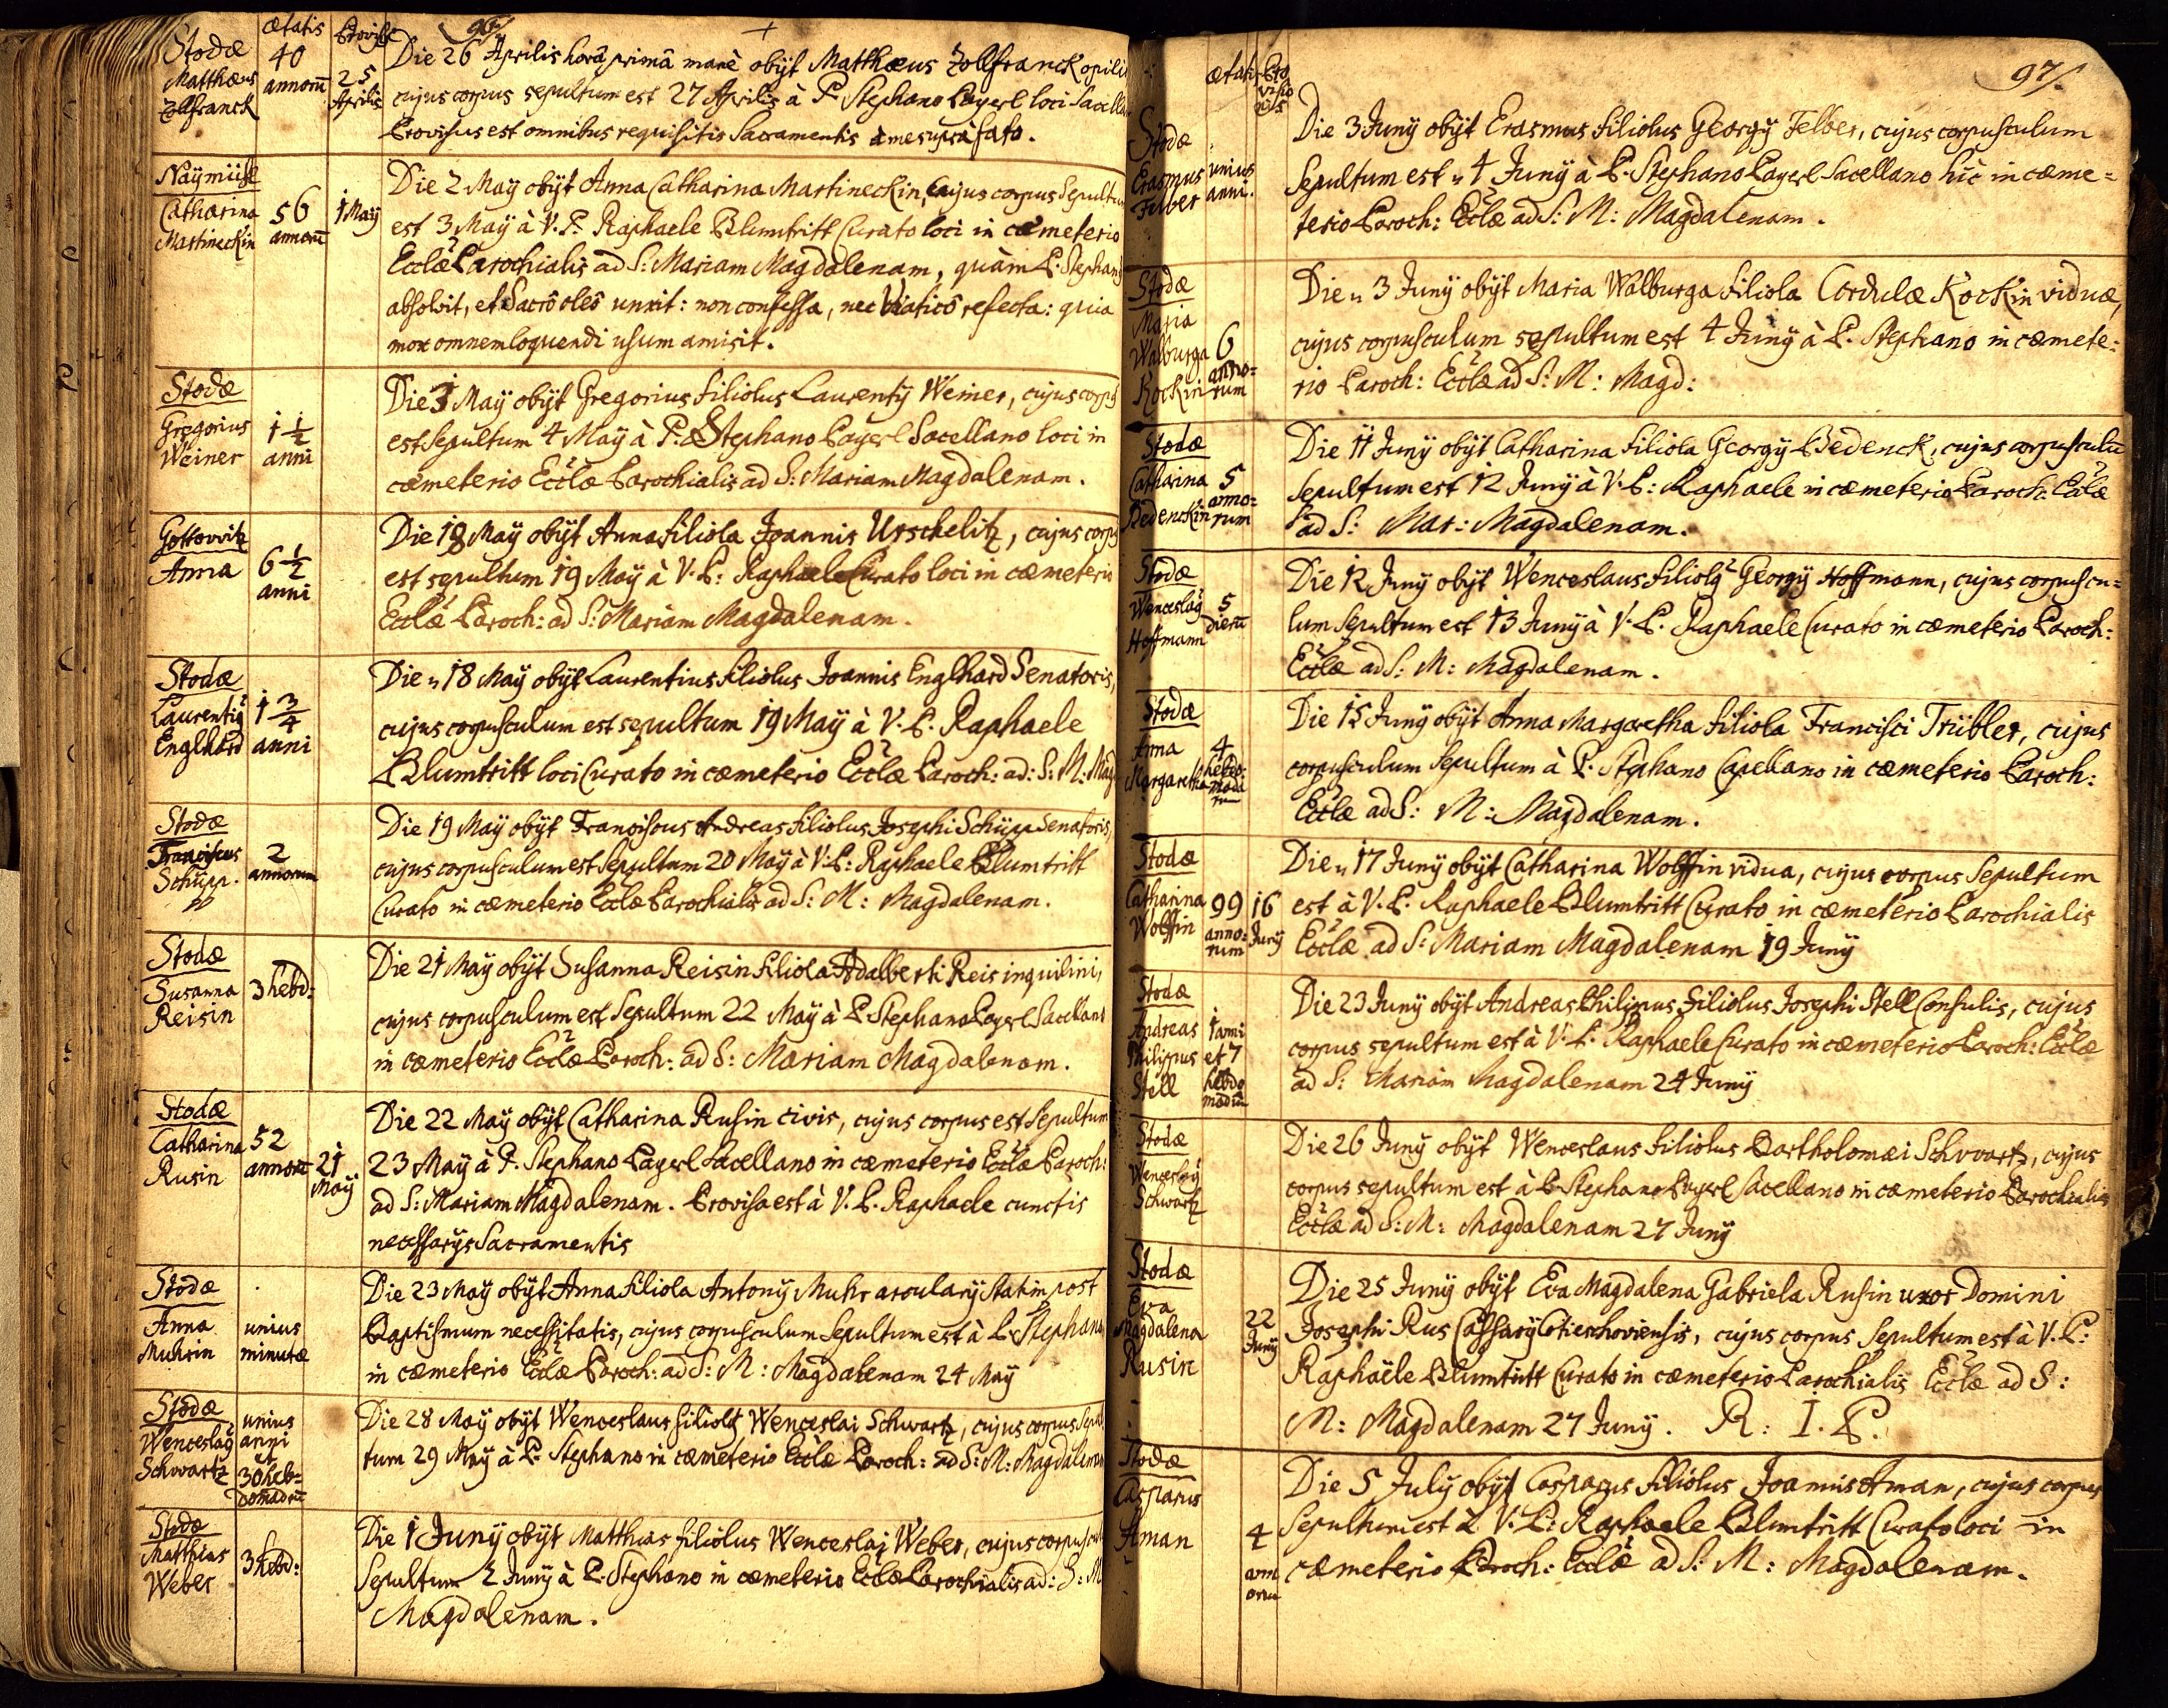 96/.
ætatis
Provis
Stodæ
Matthæus
Zollfranck
40
annorū
25
Aprilis
Die 26 Aprilis horâ primâ manè obÿt Matthæus Zollfranck opili
cujus corpus sepultum est 27 Aprilis à P. Stephano Payerl loci Sacella
Provisus est omnibus requisitis Sacramentis à me suprà fato.
Naÿmühl
Catharina
Martineckin
56
annorū
1 May
Die 2 Maÿ obÿt Anna Catharina Martineckin, cujus corpus Sepultu
est 3 Maÿ à V. P. Raphaele Blumtritt Curato loci in cæmeterio
Ecclæ Parochialis ad S: Mariam Magdalenam, quàm P. Stephan
absolvit, et Sacrô oleô unxit: non confessa, nec Viaticô refecta: quia
mox omnem loquendi usum amisit.
Stodæ
Gregorius
Weiner
1 1/2
anni
Die 3 Maÿ obÿt Gregorius filiolus Laurentÿ Weiner, cujus corpus
est Sepultum 4 Maÿ à P. Stephano Payerl Sacellano loci in
cæmeterio Ecclæ Parochialis ad S: Mariam Magdalenam.
Gottowitz
Anna
6 1/2
anni
Die 18 Maÿ obÿt Anna filiola Joannis Urschelitz, cujus corpus
est sepultum 19 Maÿ à V. P: Raphaele Curato loci in cæmeterio
Ecclæ Paroch: ad S: Mariam Magdalenam.
Stodæ
Laurentiꝰ
Englhard
1 3/4
anni
Die 18 Maÿ obÿt Laurentius filiolus Joannis Englhard Senatoris,
cujus corpusculum est sepultum 19 Maÿ à V. P. Raphaele
Blumtritt loci Curato in cæmeterio Ecclæ Paroch: ad: S: M: Magd
Stodæ
Franciscus
Schüpp.
2
annorum
Die 19 Maÿ obÿt Franciscus Andreas filiolus Josephi Schüpp Senatoris,
cujus corpusculum est Sepultum 20 Maÿ à V. P: Raphaele Blumtritt
Curato in cæmeterio Ecclæ Parochialis ad S: M: Magdalenam.
Stodæ
Susanna
Reisin
3 hebd:
Die 21 Maÿ obÿt Susanna Reisin filiola Adalberti Reis inquilini,
cujus corpusculum est Sepultum 22 Maÿ à P. Stephano Payerl Sacellano
in cæmeterio Ecclæ Paroch: ad S: Mariam Magdalenam.
Stodæ
Catharina
Rusin
52
annorū
21
Maÿ
Die 22 Maÿ obÿt Catharina Rusin civis, cujus corpus est Sepultum
23 Maÿ à P. Stephano Payerl Sacellano in cæmeterio Ecclæ Paroch:
ad S: Mariam Magdalenam. Provisa est à V. P. Raphaele cunctis
necessarÿs Sacramentis
Stodæ
Anna
Muhrin
unius
minutæ
Die 23 Maÿ obÿt Anna filiola Antonÿ Muhr arcularÿ statim post
Baptismum necessitatis, cujus corpusculum Sepultum est à P. Stephano
in cæmeterio Ecclæ Paroch: ad S: M: Magdalenam 24 Maÿ
Stodæ
Wenceslaꝰ
Schwartz
unius
anni
et
30 heb=
domadū
Die 28 Maÿ obÿt Wenceslaus filiolꝰ Wenceslai Schwartz, cujus corpus Sepul
tum 29 Maÿ à P. Stephano in cæmeterio Ecclæ Paroch: ad S: M: Magdalenam
Stodæ
Matthias
Weber
3 hebd:
Die 1 Junÿ obÿt Matthias filiolus Wenceslaj Weber, cujus corpuscul
Sepultum 2 Junÿ à P. Stephano in cæmeterio Ecclæ Parochialis ad: S: M
Magdalenam.
97/.
ætatis
Pro
visio
nis
Stodæ
Erasmus
Felber
unius
anni.
Die 3 Junÿ obÿt Erasmus filiolus Georgÿ Felber, cujus corpusculum
Sepultum est 4 Junÿ à P. Stephano Payerl Sacellano hîc in cæme=
terio Paroch: Ecclæ ad S: M: Magdalenam.
Stodæ
Maria
Walburga
Kockin
6
anno=
rum
Die 3 Junÿ obÿt Maria Walburga filiola Cordulæ Kockin viduæ,
cujus corpusculum sepultum est 4 Junÿ à P. Stephano in cæmete:
rio Paroch: Ecclæ ad S: M: Magd:
Stodæ
Catharina
Bedenckin
5
anno=
rum
Die 11 Junÿ obÿt Catharina filiola Georgÿ Bedenck, cujus corpusculū
Sepultum est 12 Junÿ à V. P: Raphaele in cæmeterio Paroch: Ecclæ
ad S: Mar: Magdalenam.
Stodæ
Wenceslaꝰ
Hoffmann
5
dierū
Die 12 Junÿ obÿt Wenceslaus filiolꝰ Georgÿ Hoffmann, cujus corpuscu=
lum Sepultum est 13 Junÿ à V. P. Raphaele Curato in cæmeterio Paroch:
Ecclæ ad S: M: Magdalenam.
Stodæ
Anna
Margaretha
4
hebdo
mada
rum
Die 15 Junÿ obÿt Anna Margaretha filiola Francisci Trübler, cujus
corpusculum Sepultum à P. Stephano Capellano in cæmeterio Paroch:
Ecclæ ad S: M: Magdalenam.
Stodæ
Catharina
Wolffin
99
anno=
rum
16
Junÿ
Die 17 Junÿ obÿt Catharina Wolffin vidua, cujus corpus Sepultum
est à V. P. Raphaele Blumtritt Curato in cæmeterio Parochialis
Ecclæ ad S: Mariam Magdalenam 19 Junÿ
Stodæ
Andreas
Philippus
Stell
1 anni
et 7
hebdo
madū
Die 23 Junÿ obÿt Andreas Philippus filiolus Josephi Stell Consulis, cujus
corpus sepultum est à V. P. Raphaele Curato in cæmeterio Paroch: Ecclæ
ad S: Mariam Magdalenam 24 Junÿ
Stodæ
Wenceslaꝰ
Schwartz
Die 26 Junÿ obÿt Wenceslaus filiolus Bartholomæi Schwartz, cujus
corpus sepultum est à P. Stephano Payerl Sacellano in cæmeterio Parochialis
Ecclæ ad S: M: Magdalenam 27 Junÿ
Stodæ
Eva
Magdalena
Rusin
22
Junÿ
Die 25 Junÿ obÿt Eva Magdalena Gabriela Rusin uxor Domini
Josephi Rus, cujus corpus Sepultum est à V. P:
Raphaële Blumtritt Curato in cæmeterio Parochialis Ecclæ ad S:
M: Magdalenam 27 Junÿ. R: I. P.
Stodæ
Casparus
Aman
4
ann
orum
Die 5 Julÿ obÿt Casparus filiolus Joannis Aman, cujus corpus
Sepultum est à V. P: Raphaele Blumtritt Curato loci in
cæmeterio Paroch: Ecclæ ad S: M: Magdalenam.